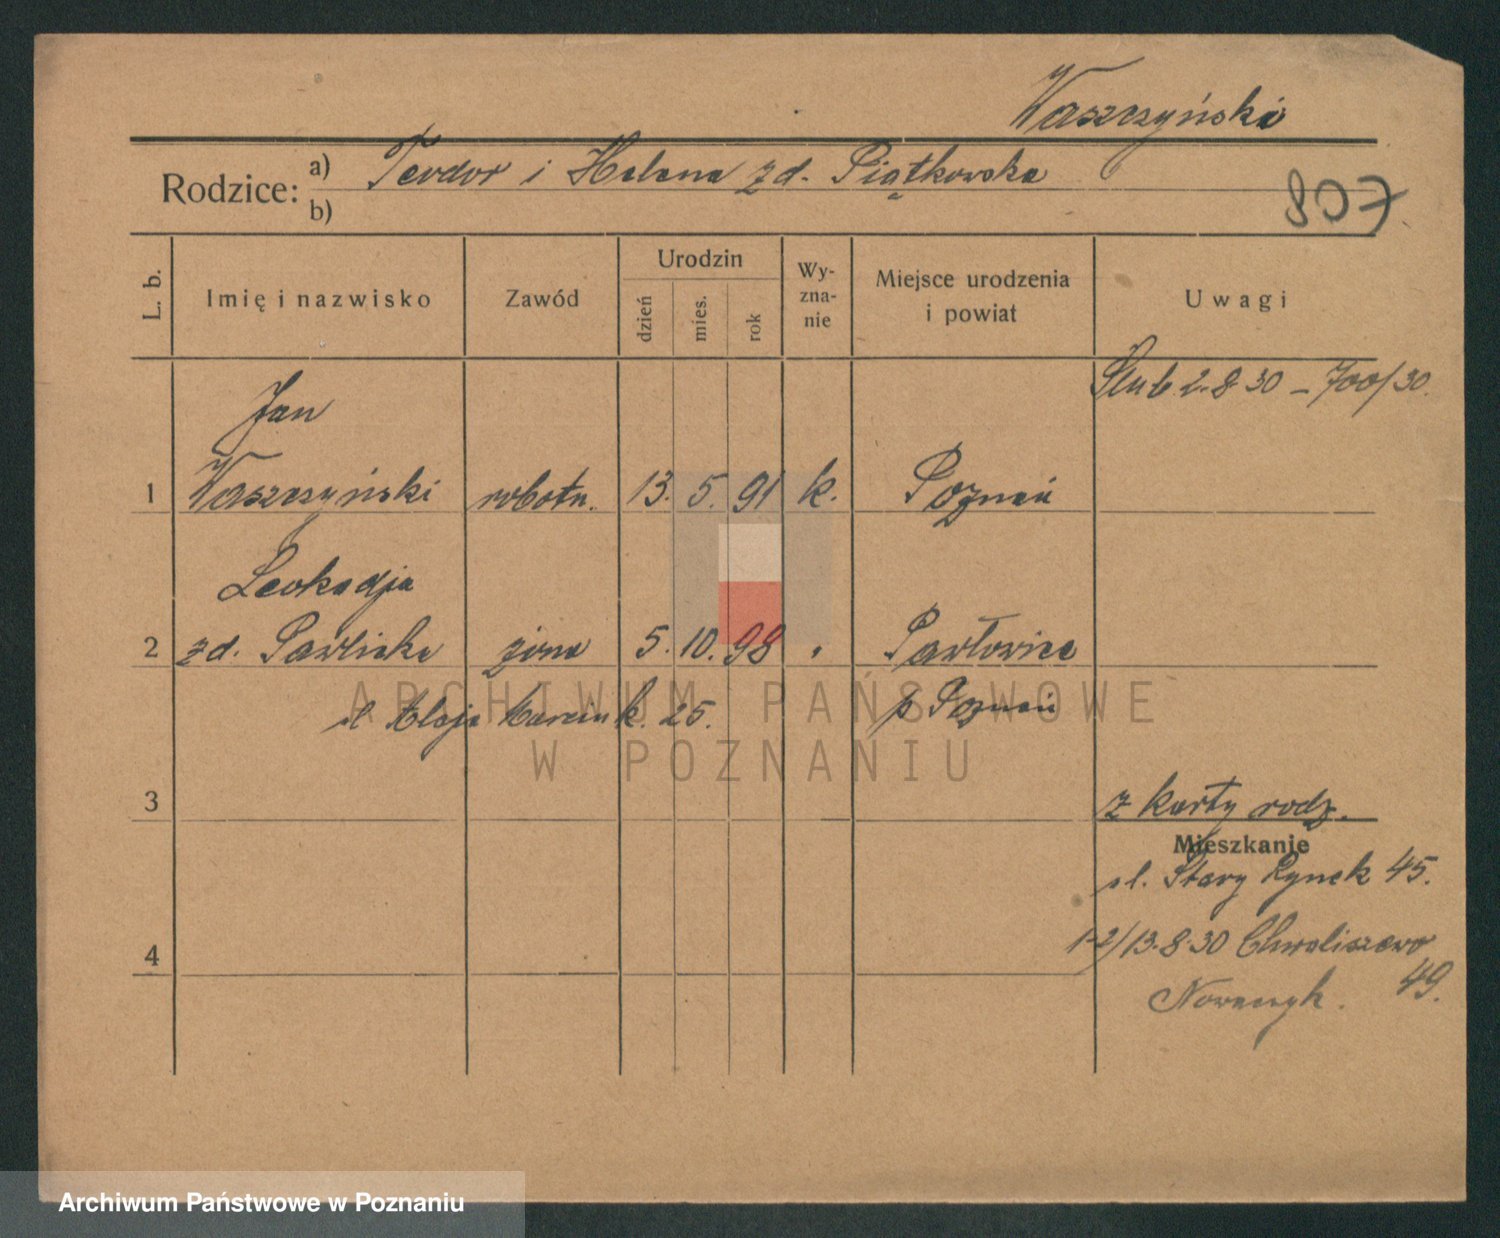 Waszczyński
Rodzice: a) Teodor i Helena zd. Piątkowska
b)
807
L. b.
Imię i nazwisko
Zawód
Urodzin
dzień
mies.
rok
Wy-
zna-
nie
Miejsce urodzenia
i powiat
Uwagi
Ślub 2.8.30 – 700/30.
Jan
1 Waszczyński robotn. 13. 5. 91 k. Poznań
Leokadja
2 zd. Pawlicka żona 5. 10. 98 " Pawłowice
Aleja Marcink. 25. p Poznań
ARCHIWUM PAŃSTWOWE
W POZNANIU
3
z karty rodz.
Mieszkanie
ul. Stary Rynek 45.
4
1-2/13.8.30 Chwaliszewo
49.
Nowaczyk.
Archiwum Państwowe w Poznaniu